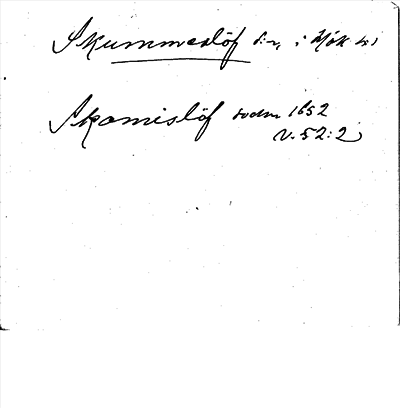 Skummeslöf s:n, i Hök hd
Skomislöf sochn 1652
V. 52:2